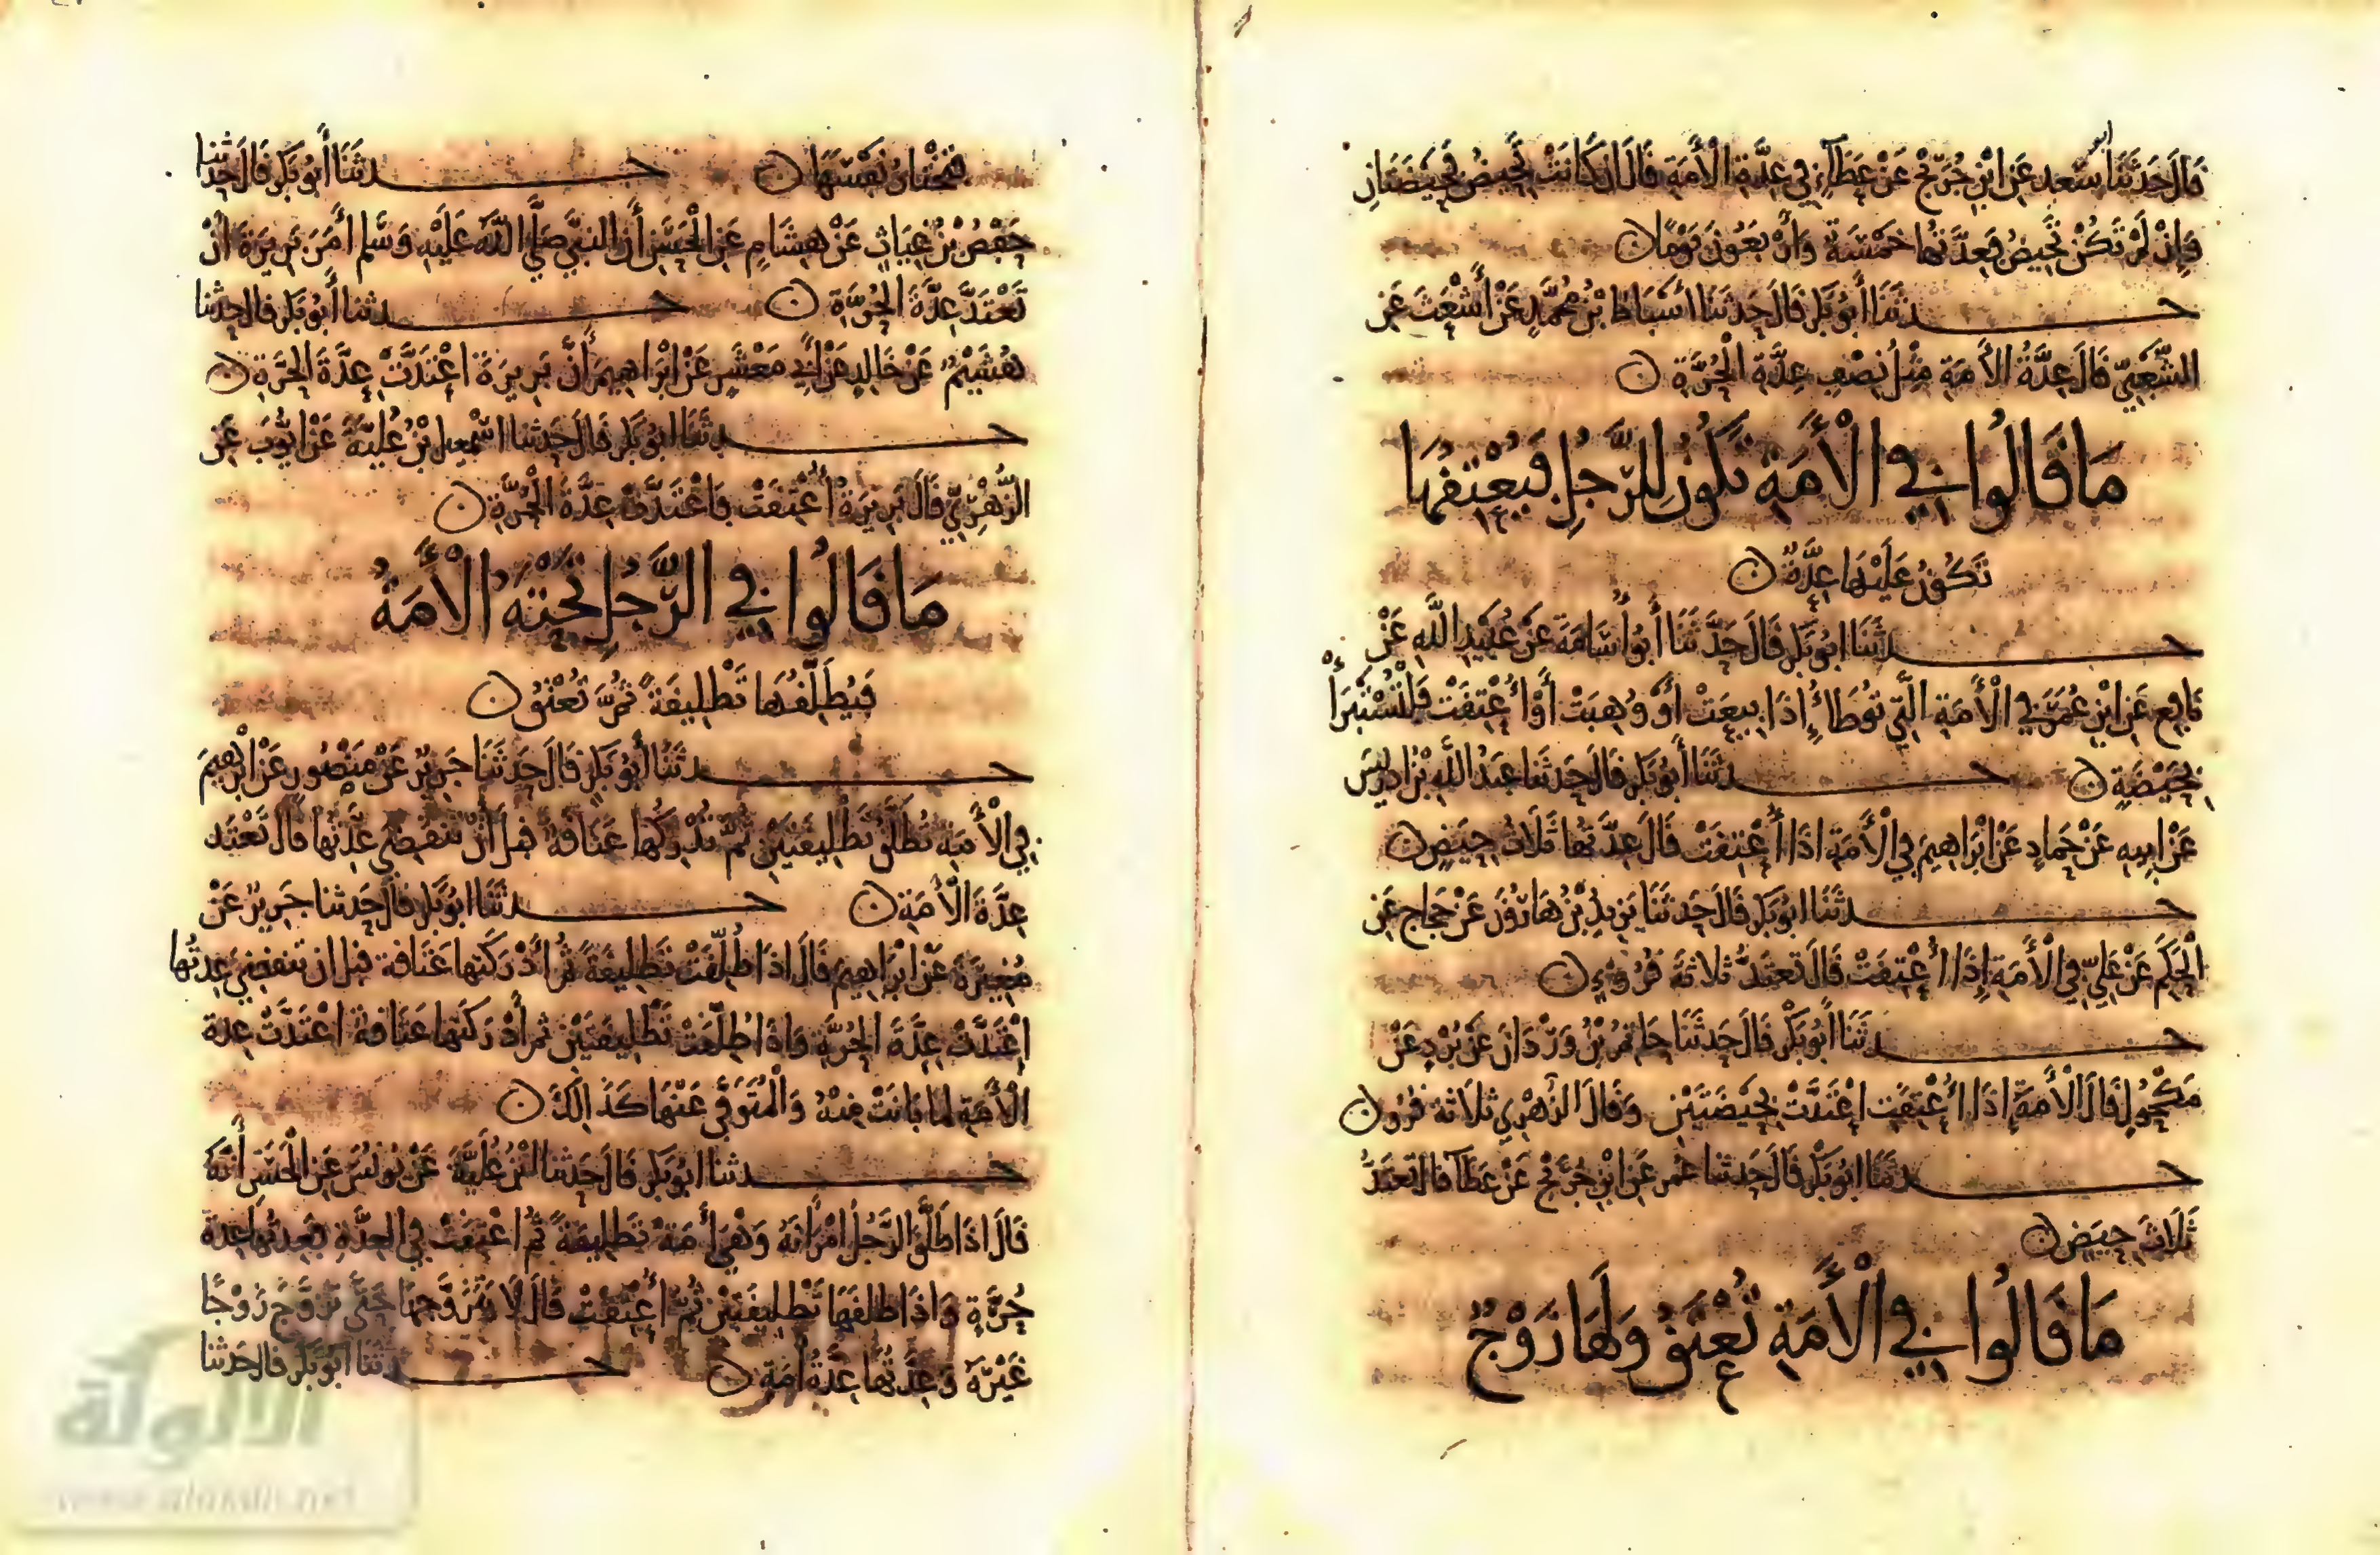 قَالَ حَدَّثَنَا سَعِيد عَنِ ابْنِ جُرَيْجٍ عَنْ عَطَاءٍ فِي عِدَّةِ الْأَمَةِ قَالَ إِنْ كَانَتْ تَحِيضُ فَحَيْضَتَانِ
وَإِنْ لَمْ تَكُنْ تَحِيضُ فَعِدَّتُهَا خَمْسَةٌ وَأَرْبَعُونَ يَوْمًا
حدثَنَا أَبُو بَكْرٍ قَالَ حَدَّثَنَا أَسْبَاطُ بْنُ مُحَمَّدٍ عَنْ أَشْعَثَ عَنِ
الشَّعْبِيِّ قَالَ عِدَّةُ الْأَمَةِ مِثْلُ نِصْفِ عِدَّةِ الْحُرَّةِ
مَا قَالُوا فِي الْأَمَةِ تَكُونُ لِلرَّجُلِ فَيُعْتِقُهَا
تَكُونُ عَلَيْهَا عِدَّةٌ
حدثَنَا أَبُو بَكْرٍ قَالَ حَدَّثَنَا أَبُو أُسَامَةَ عَنْ عُبَيْدِ اللَّهِ عَنْ
نَافِعٍ عَنِ ابْنِ عُمَرَ فِي الْأَمَةِ الَّتِي تُوطَأُ إِذَا بِيعَتْ أَوْ وُهِبَتْ أَوْ أُعْتِقَتْ فَلْتُسْتَبْرَأْ
بِحَيْضَةٍ حدثَنَا أَبُو بَكْرٍ قَالَ حَدثَنَا عَبْدُ اللَّهِ بْنُ إِدْرِيسَ
عَنْ أَبِيهِ عَنْ حَمَّادٍ عَنْ إِبْرَاهِيمَ فِي الْأَمَةِ إِذَا أُعْتِقَتْ قَالَ عِدَّتُهَا ثَلَاثُ حِيَضٍ
حدثَنَا أَبُو بَكْرٍ قَالَ حَدثَنَا يَزِيدُ بْنُ هَارُونَ عَنْ حَجَّاجٍ عَنِ
الْحَكَمِ عَنْ عَلِيٍّ فِي الْأَمَةِ إِذَا أُعْتِقَتْ قَالَ تَعْتَدُّ ثَلَاثَةَ قُرُوءٍ
حدثَنَا أَبُو بَكْرٍ قَالَ حَدثَنَا حَاتِمُ بْنُ وَرْدَانَ عَنْ بُرْدٍ عَنْ
مَكْحُولٍ قَالَ الْأَمَةُ إِذَا أُعْتِقَتِ اعْتَدَّتْ بِحَيْضَتَيْنِ وَقَالَ الزُّهْرِي ثَلَاثَةَ قرو
حدثَنَا أَبُو بَكْرٍ قَالَ حَدثَنَا عُمَر عَنِ ابْنِ جُرَيْجٍ عَنْ عَطَا قَالَ تَعْتَدُّ
ثَلَاثَ حِيَضٍ
مَا قَالُوا فِي الْأَمَةِ تُعْتَقُ وَلَهَا زَوْجٌ
فَتَخْتَارُ نَفْسَهَا حدثَنَا أَبُو بَكْرٍ قَالَ حَدثَنا
حَفْصُ بْنُ غِيَاثٍ عَنْ هِشَامٍ عَنِ الْحَسَنِ أَنَّ النَّبِيَّ صَلَّى اللَّهُ عَلَيْهِ وَسَلَّم أَمَرَ بَرِيرَةَ أَنْ
تَعْتَدَّ عِدَّةَ الْحُرَّةِ حدثنا أَبُو بَكْرٍ قَالَ حدثنا
هُشَيْمٌ عَنْ خَالِدٍ عَنْ أَبِي مَعْشَرٍ عَنْ إِبْرَاهِيمَ أَنَّ بَرِيرَةَ اعْتَدَّتْ عِدَّةَ الْحُرَّةِ
حدثَنَا أَبُو بَكْرٍ قَالَ حَدثنا إِسْمَعِيلُ بْنُ عُلَيَّةَ عَنْ أَيُّوبَ عَنِ
الزُّهْرِيِّ قَالَ بَرِيرَةُ أُعْتِقَتْ فَاعْتَدَّتْ عِدَّةَ الْحُرَّةِ
مَا قَالُوا فِي الرَّجُلِ تَحْتَهُ الْأَمَةُ
فَيُطَلِّقُهَا تَطْلِيقَةً ثُمَّ تُعْتَقُ
حدثَنَا أَبُو بَكْرٍ قَالَ حَدَّثَنَا جَرِيرٌ عَنْ مَنْصُورٍ عَنْ إِبْرَهِيمَ
فِي الْأَمَةِ تُطَلَّقُ تَطْلِيقَتَيْنِ ثُمَّ تُدْرِكُهَا عَتَاقَةٌ قبل أَنْ تَنْقَضِي عِدَّتُهَا قَالَ تَعْتَد
عِدَّةَ الْأَمَةِ حدثَنَا أَبُو بَكْرٍ قَالَ حَدثنا جَرِيرٌ عَنْ
مُغِيرَةَ عَنْ إِبْرَاهِيمَ قَالَ إِذَا طُلِّقَتْ تَطْلِيقَةً ثُمَّ أَدْرَكَتْهَا عَتَاقَة قبل ان تنقضي عِدتُها
اعْتَدَّتْ عِدَّةَ الْحُرَّةِ وَإِذَا طُلِّقَتْ تَطْلِيقَتَيْنِ ثم أَدْرَكَتْهَا عَتَاقَةٌ اعْتَدَّتْ عِدة
الْأَمَةِ لِمَا بَانَتْ مِنْهُ وَالْمُتَوَفَّى عَنْهَا كَذَلِكَ
حدثنا أَبُو بَكْرٍ قَالَ حَدثنا ابْنُ عُلَيَّةَ عَنْ يُونُسَ عَنِ الْحَسَنِ أَنَّهُ
قَالَ إِذَا طَلَّقَ الرَّجُلُ امْرَأَتَهُ وَهْيَ أَمَةٌ تَطْلِيقَةً ثُمَّ أُعْتِقَتْ فِي الْعِدَّةِ فَعِدتُهَا عِدة
حُرَّةٍ وَإِذَا طَلقَهَا تَطْلِيقَتَيْنِ ثُمَّ أُعْتِقَتْ قَالَ لَا يَتَزَوَّجهَا حَتَّى تَزَوَّجَ زَوْجًا
غَيْرَهُ وَعِدَّتُهَا عِدَّةُ أَمَةٍ حدثنا أَبُو بَكْرٍ قَالَ حَدثنا
الألوكة
www.alukah.net